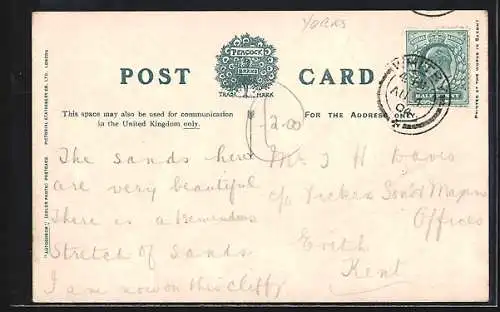 YORKS
PEACOCK
BRAND
TRADE MARK
POST CARD
This space may also be used for communication
in the United Kingdom only.
FOR THE ADDRESS ONLY
WHITBY
AU
"AUTOCHROM" (COLOUR PHOTO) POSTCARD
PICTORIAL STATIONERY CO. LTD., LONDON
PRINTED AT THE WORKS IN SAXONY
2.00
The sands here
are very beautiful
There is a tremendous
Stretch of Sands
I am now on this cliff
Mrs J H Davis
c/o Vickers Sons & Maxim
Offices
Erith
Kent